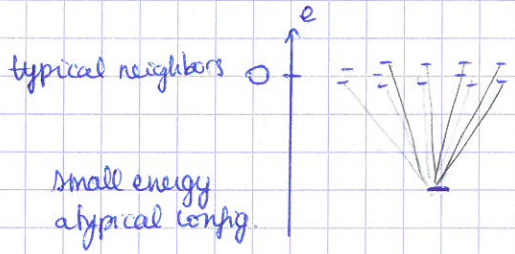 e
typical neighbors 0
small energy
atypical config.